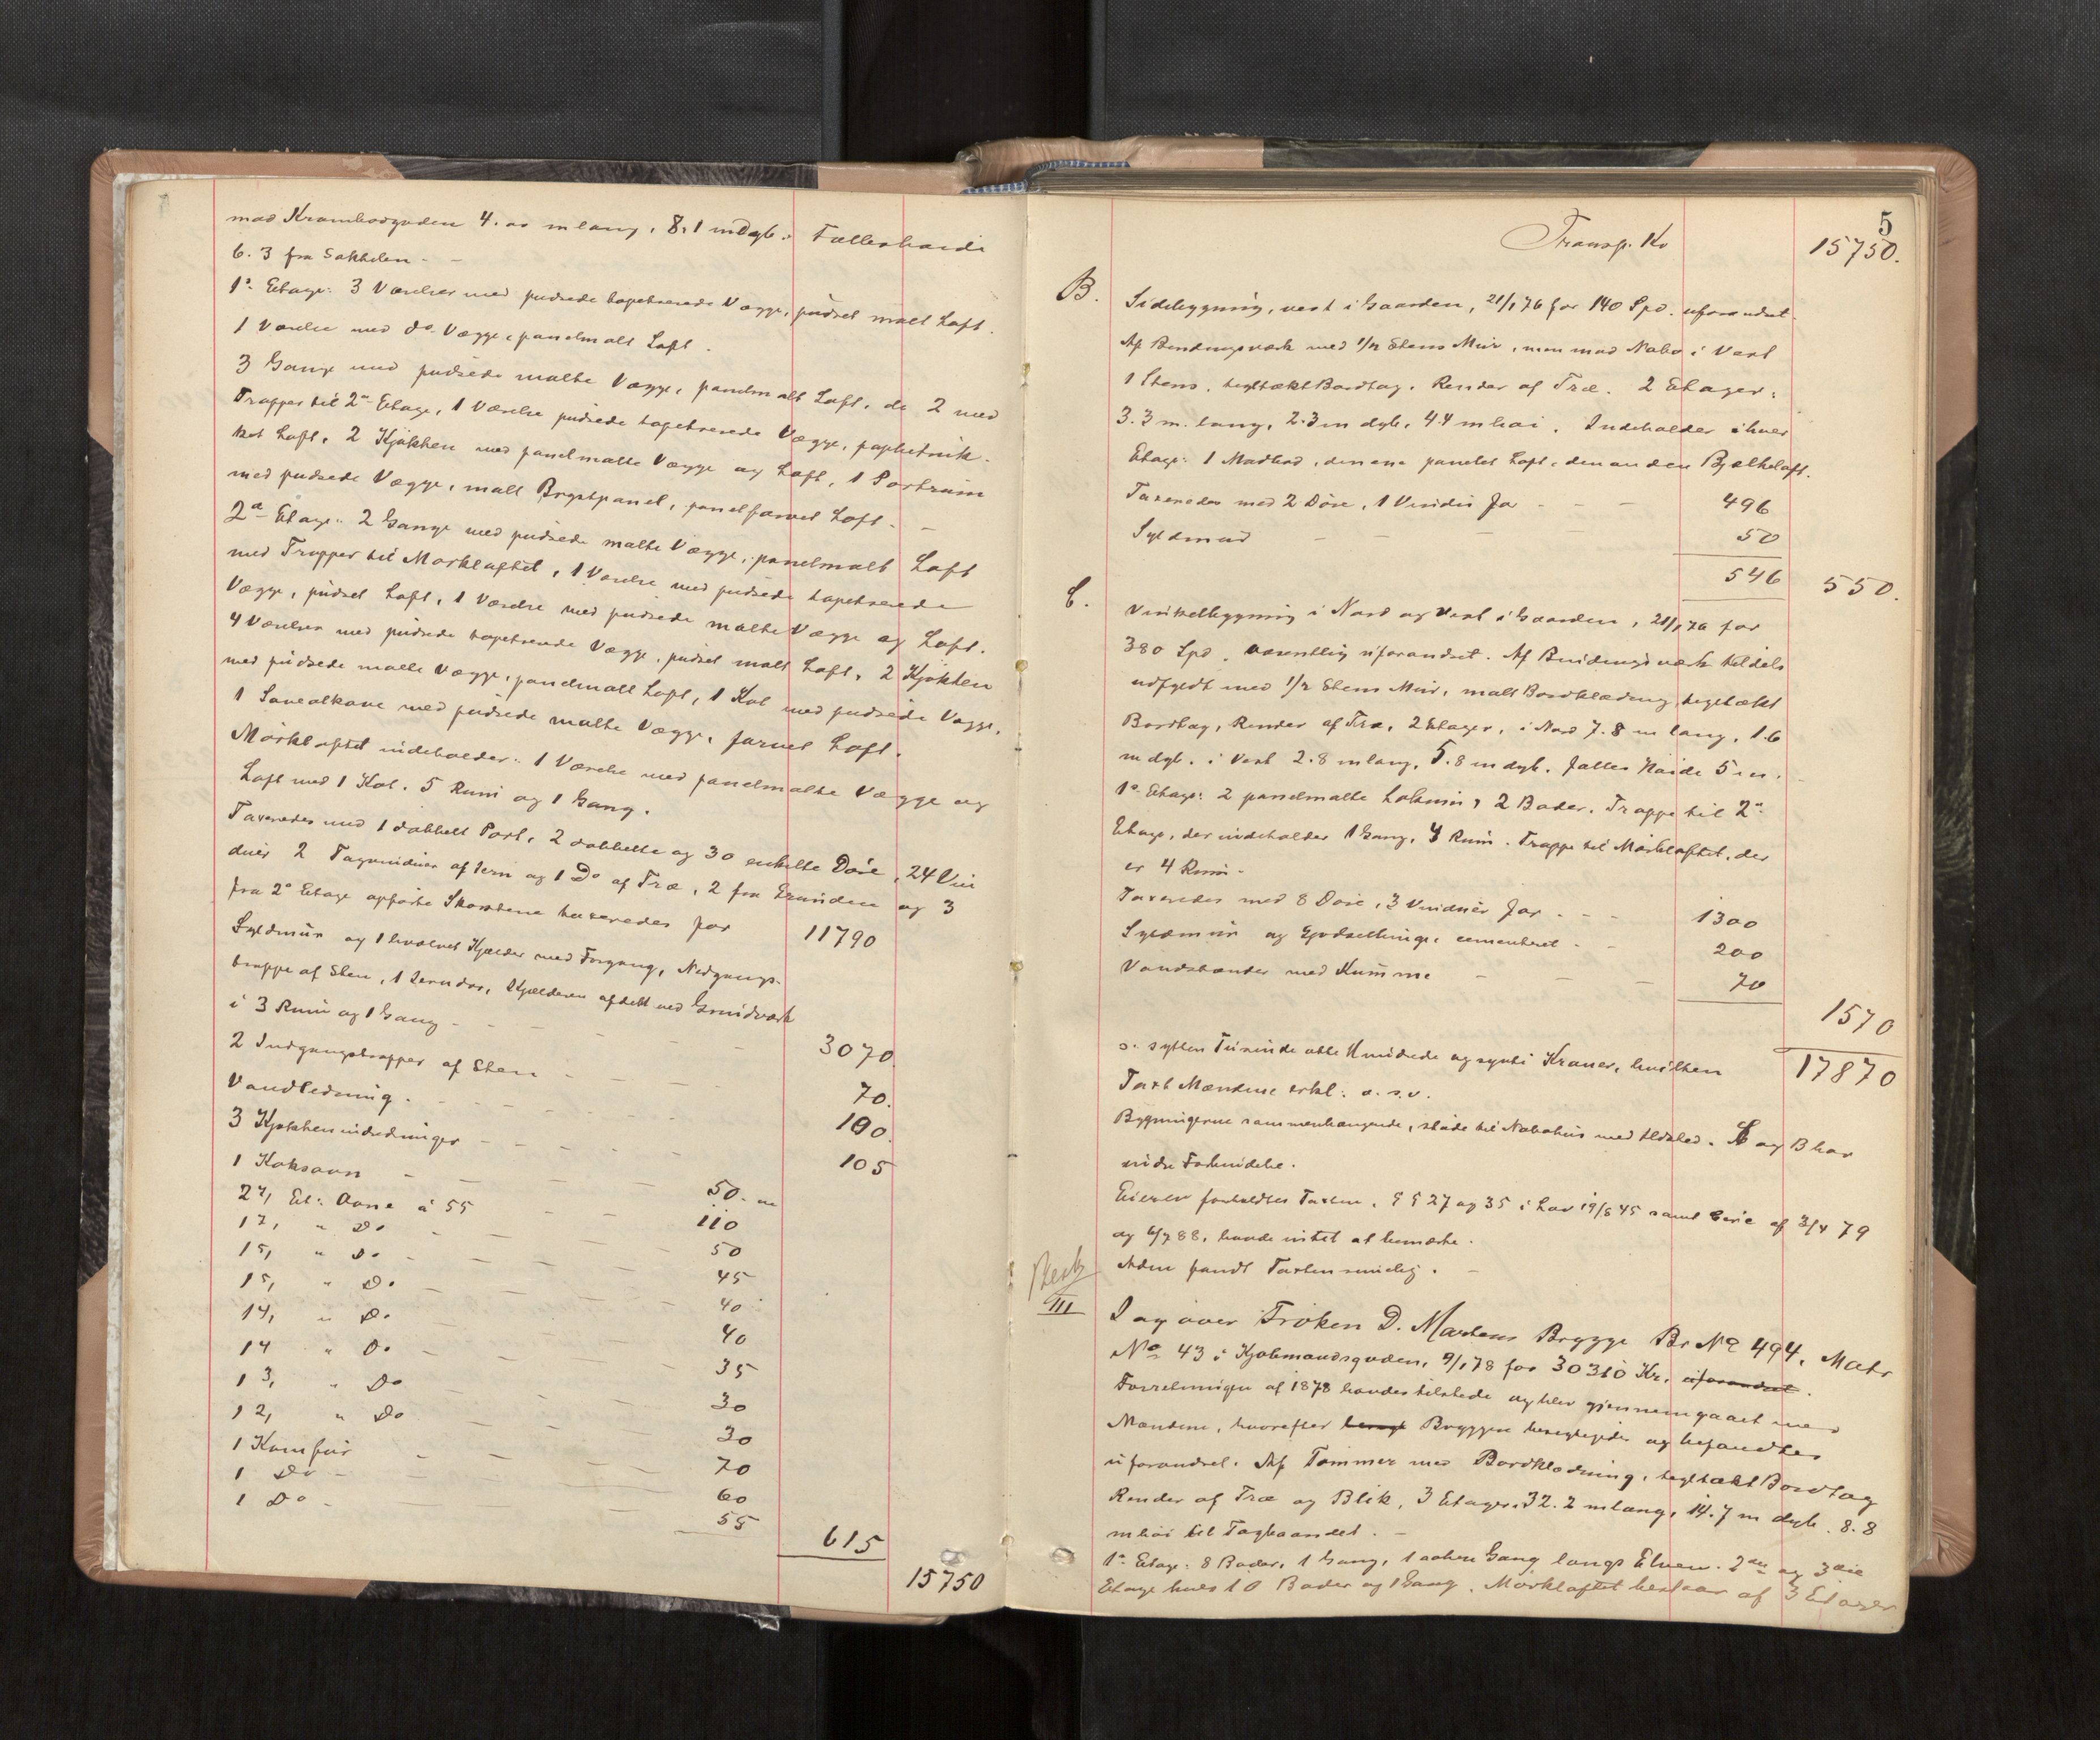 mod Krambodgaden 4.00 m lang, 8.1 m dyb. Fælleshøide
6.3 fra Sokkelen. -
1ste Etage: 3 Værelser med pudsede tapetserede Vægge, pudset malt Loft.
1 Værelse med do Vægge, panelmalt Loft.
3 Gange med pudsede malte Vægge, panelmalt Loft, de 2 med
Trapper til 2den Etage, 1 Værelse pudsede tapetserede Vægge, paptrukket
Loft, 2 Kjøkken med panelmalte Vægge og Loft, 1 Portrum
med pudsede Vægge, malt Brystpanel, panelfarvet Loft. -
2den Etage: 2 Gange med pudsede malte Vægge, panelmalt Loft
med Trapper til Mørkloftet, 1 Værelse med pudsede tapetserede
Vægge, pudset Loft, 1 Værelse med pudsede malte Vægge og Loft.
4 Værelser med pudsede tapetserede Vægge, pudset malt Loft, 2 Kjøkken
med pudsede malte Vægge, panelmalt Loft, 1 Kot med pudsede Vægge,
1 Sovealkove med pudsede malte Vægge, farvet Loft.
Mørkloftet indeholder: 1 Værelse med panelmalte Vægge og
Loft med 1 Kot. 5 Rum og 1 Gang.
Taxeredes med 1 dobbelt Port, 2 dobbelte og 30 enkelte Døre, 24 Vin
duer 2 Tagvinduer af Jern og 1 Do af Træ, 2 fra Grunden og 3
fra 2den Etage opførte Skorstene taxeredes for 11790
Syldmur og 1 hvælvet Kjælder med Forgang, Nedgangs-
trappe af Sten, 1 Jerndør, Kjælderen afdelt ved Grindværk
i 3 Rum og 1 Gang - - - - - 3070.
2 Indgangstrapper af Sten - - - - 70.
Vandledning. - - - - - 100.
3 Kjøkkenindredninger - - - - 105
1 Koksovn - - - - 50. "
2 2/, Et: Ovne á 55 - - 110
1 2/, " Do - - - - 50
1 5/, " Do - - - - 45
1 5/, " Do - - - - 40
1 4/, " Do - - - - 40
1 4 " Do - - - - 35
1 3/, " Do - - - - 30
1 2/, " Do - - - - 30
1 Komfur - - - - 70
1 Do - - - - 60
1 Do - - - - 55
615
15750
5
Transp. Kr 15750.
B. Sidebygning, vest i Gaarden, 21/1 76 for 140 Spd. uforandret.
Af Bindingsværk med 1/2 Stens Mur, men mod Nabo i Vest
1 Stens, tegltækt Bordtag. Render af Træ. 2 Etager,
3.3 m. lang, 2.3 m dyb, 4.4 m høi. Indeholder i hver
Etage: 1 Madbod, den ene panelet Loft, den anden Bjelkeloft.
Taxeredes med 2 Døre, 1 Vindu for - - - 496
Syldmur - - - 50
546 550.
C. Vinkelbygning i Nord og Vest i Gaarden, 21/1 76 for
380 Spd. væsentlig uforandret. Af Bindingsværk tildels
udfyldt med 1/2 Stens Mur, malt Bordklædning, tegltækt
Bordtag, Render af Træ, 2 Etager, i Nord 7.8 m lang, 1.6
m dyb. i Vest 2.8 m lang, 5.8 m dyb. fælles Høide 5 m.
1ste Etage: 2 panelmalte Lokum, 2 Boder. Trappe til 2den
Etage, der indeholder 1 Gang, 4 Rum. Trappe til Mørkloftet, der
er 4 Rum.
Taxeredes med 8 Døre, 3 Vinduer for - - - 1300
Syldmur og Gjødselbinge, cementeret - - 200
Vandstænder med Kumme - - - 70
1570
s. sytten Tusinde otte Hundrede og sytti Kroner, hvilken 17870
Taxt Mændene erkl: o. s. v.
Bygningerne sammenhængende, støde til Nabohus med Ildsted. A og B har
indre Forbindelse.
Eieren forholdtes Taxten, § § 27 og 35 i Lov 19/8 45 samt Circ af 3/4 79
og 6/7 88, havde intet at bemærke.
Adm fandt Taxten rimelig. -
III I ag over Frøken D. Martens Brygge Br No 494, Matr
No 43 i Kjøbmandsgaden, 9/1 78 for 30310 Kr. uforandret.
Forretningen af 1878 havdes tilstede og blev gjennemgaaet med
Mændene, hvorefter besigt Bryggen besigtigedes og befandtes
uforandret. Af Tømmer med Bordklædning, tegltækt Bordtag
Render af Træ og Blik, 3 Etager, 32.2 m lang, 14.7 m dyb. 8.8
m høi til Tagbaandet. -
1ste Etage: 8 Boder, 1 Gang, 1 aaben Gang langs Elven. 2den og 3die
Etage hver 10 Boder og 1 Gang. Mørkloftet bestaar af 3 Etager